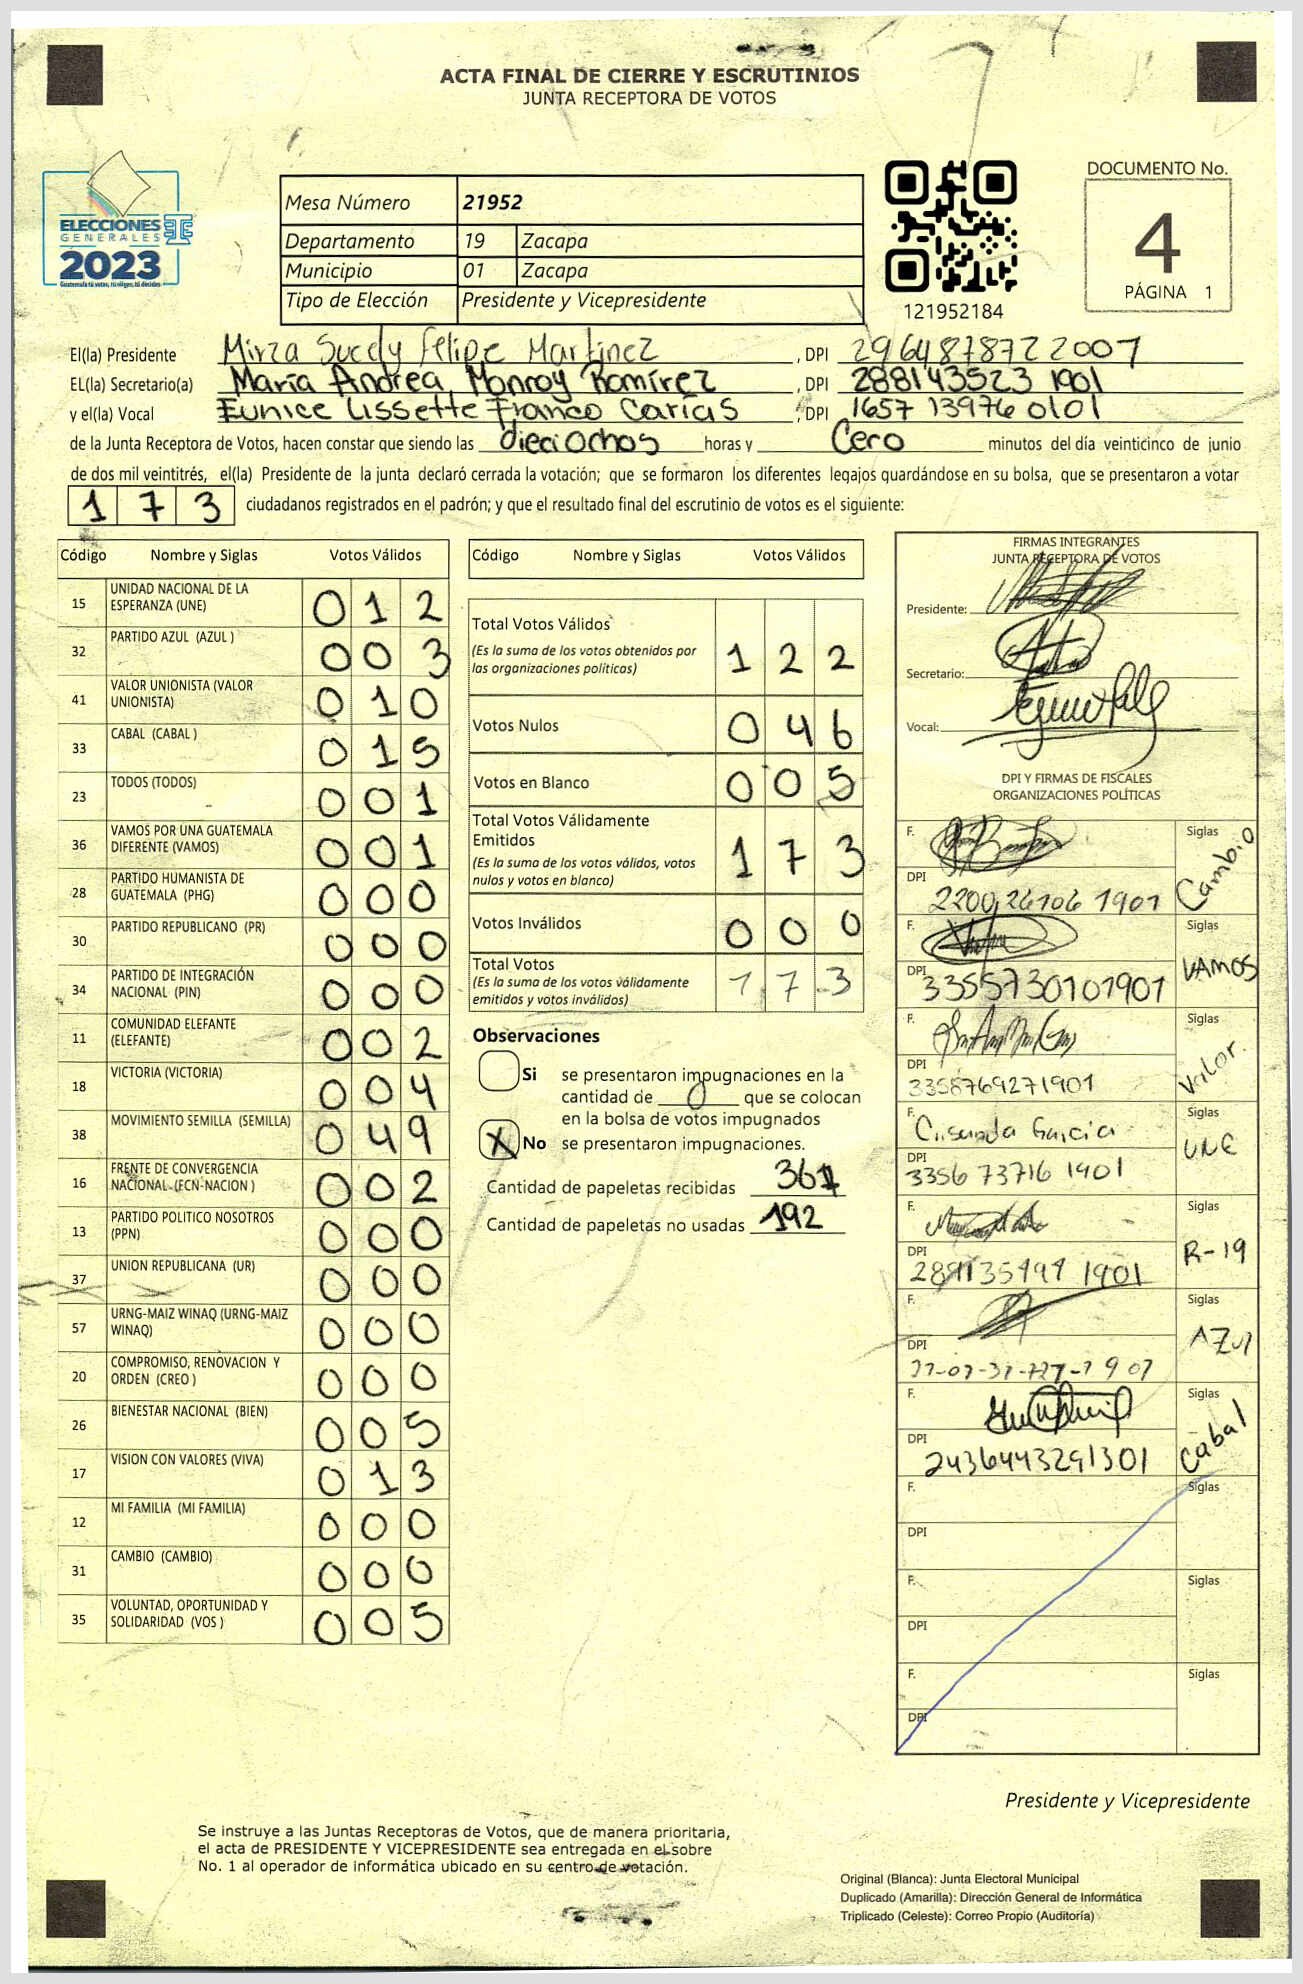 ACTA FINAL DE CIERRE Y ESCRUTINIOS
JUNTA RECEPTORA DE VOTOS
ELECCIONES
GENERALES
2023
Guatemala tú votas, tú eliges, tú decides
Mesa Número 21952
Departamento 19 Zacapa
Municipio 01 Zacapa
Tipo de Elección Presidente y Vicepresidente
121952184
DOCUMENTO No.
4
PÁGINA 1
El(la) Presidente Mirza Sucely Felipe Martinez, DPI 2964878722007
EL(la) Secretario(a) María Andrea Monroy Ramírez, DPI 288143523 1901
y el(la) Vocal Eunice Lissette Franco Carías, DPI 1657 13976 0101
de la Junta Receptora de Votos, hacen constar que siendo las dieciochos horas y Cero minutos del día veinticinco de junio
de dos mil veintitrés, el(la) Presidente de la junta declaró cerrada la votación; que se formaron los diferentes legajos quardándose en su bolsa, que se presentaron a votar
173 ciudadanos registrados en el padrón; y que el resultado final del escrutinio de votos es el siguiente:
Código Nombre y Siglas Votos Válidos
15 UNIDAD NACIONAL DE LA ESPERANZA (UNE) 012
32 PARTIDO AZUL (AZUL ) 003
41 VALOR UNIONISTA (VALOR UNIONISTA) 010
33 CABAL (CABAL ) 015
23 TODOS (TODOS) 001
36 VAMOS POR UNA GUATEMALA DIFERENTE (VAMOS) 001
28 PARTIDO HUMANISTA DE GUATEMALA (PHG) 000
30 PARTIDO REPUBLICANO (PR) 000
34 PARTIDO DE INTEGRACIÓN NACIONAL (PIN) 000
11 COMUNIDAD ELEFANTE (ELEFANTE) 002
18 VICTORIA (VICTORIA) 004
38 MOVIMIENTO SEMILLA (SEMILLA) 049
16 FRENTE DE CONVERGENCIA NACIONAL (FCN-NACION ) 002
13 PARTIDO POLITICO NOSOTROS (PPN) 000
37 UNION REPUBLICANA (UR) 000
57 URNG-MAIZ WINAQ (URNG-MAIZ WINAQ) 000
20 COMPROMISO, RENOVACION Y ORDEN (CREO ) 000
26 BIENESTAR NACIONAL (BIEN) 005
17 VISION CON VALORES (VIVA) 013
12 MI FAMILIA (MI FAMILIA) 000
31 CAMBIO (CAMBIO) 000
35 VOLUNTAD, OPORTUNIDAD Y SOLIDARIDAD (VOS ) 005
Código Nombre y Siglas Votos Válidos
Total Votos Válidos 122
(Es la suma de los votos obtenidos por
las organizaciones politicas)
Votos Nulos 046
Votos en Blanco 005
Total Votos Válidamente
Emitidos 173
(Es la suma de los votos válidos, votos
nulos y votos en blanco)
Votos Inválidos 000
Total Votos 173
(Es la suma de los votos válidamente
emitidos y votos inválidos)
Observaciones
Si se presentaron impugnaciones en la
cantidad de 0 que se colocan
en la bolsa de votos impugnados
X No se presentaron impugnaciones.
Cantidad de papeletas recibidas 367
Cantidad de papeletas no usadas 192
FIRMAS INTEGRANTES
JUNTA RECEPTORA DE VOTOS
Presidente:
Secretario:
Vocal:
DPI Y FIRMAS DE FISCALES
ORGANIZACIONES POLÍTICAS
F. Siglas Cambio
DPI 2200 26106 1901
F. Siglas VAMOS
DPI 3355730101901
F. Siglas Valor.
DPI 3358769271901
F. García Siglas UNE
DPI 3356 73716 1901
F. Siglas R-19
DPI 1901
F. Siglas AZul
DPI
F. Siglas Cabal
DPI 2436443291301
F. Siglas
DPI
F. Siglas
DPI
F. Siglas
DPI
Presidente y Vicepresidente
Se instruye a las Juntas Receptoras de Votos, que de manera prioritaria,
el acta de PRESIDENTE Y VICEPRESIDENTE sea entregada en el sobre
No. 1 al operador de informática ubicado en su centro de votación.
Original (Blanca): Junta Electoral Municipal
Duplicado (Amarilla): Dirección General de Informática
Triplicado (Celeste): Correo Propio (Auditoría)